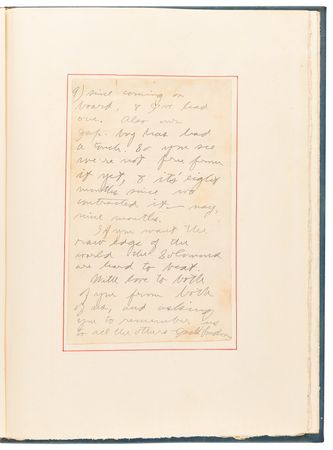 9) since coming on
board, & I've had
one. Also our
Jap. boy has had
a touch. So you see
we're not free from
it yet, & it's eight
months since we
contracted it — nay,
nine months.
If you want the
raw edge of the
world the Solomons
are hard to beat.
With love to both
of you from both
of us, and asking
you to remember us
to all the others — Jack London